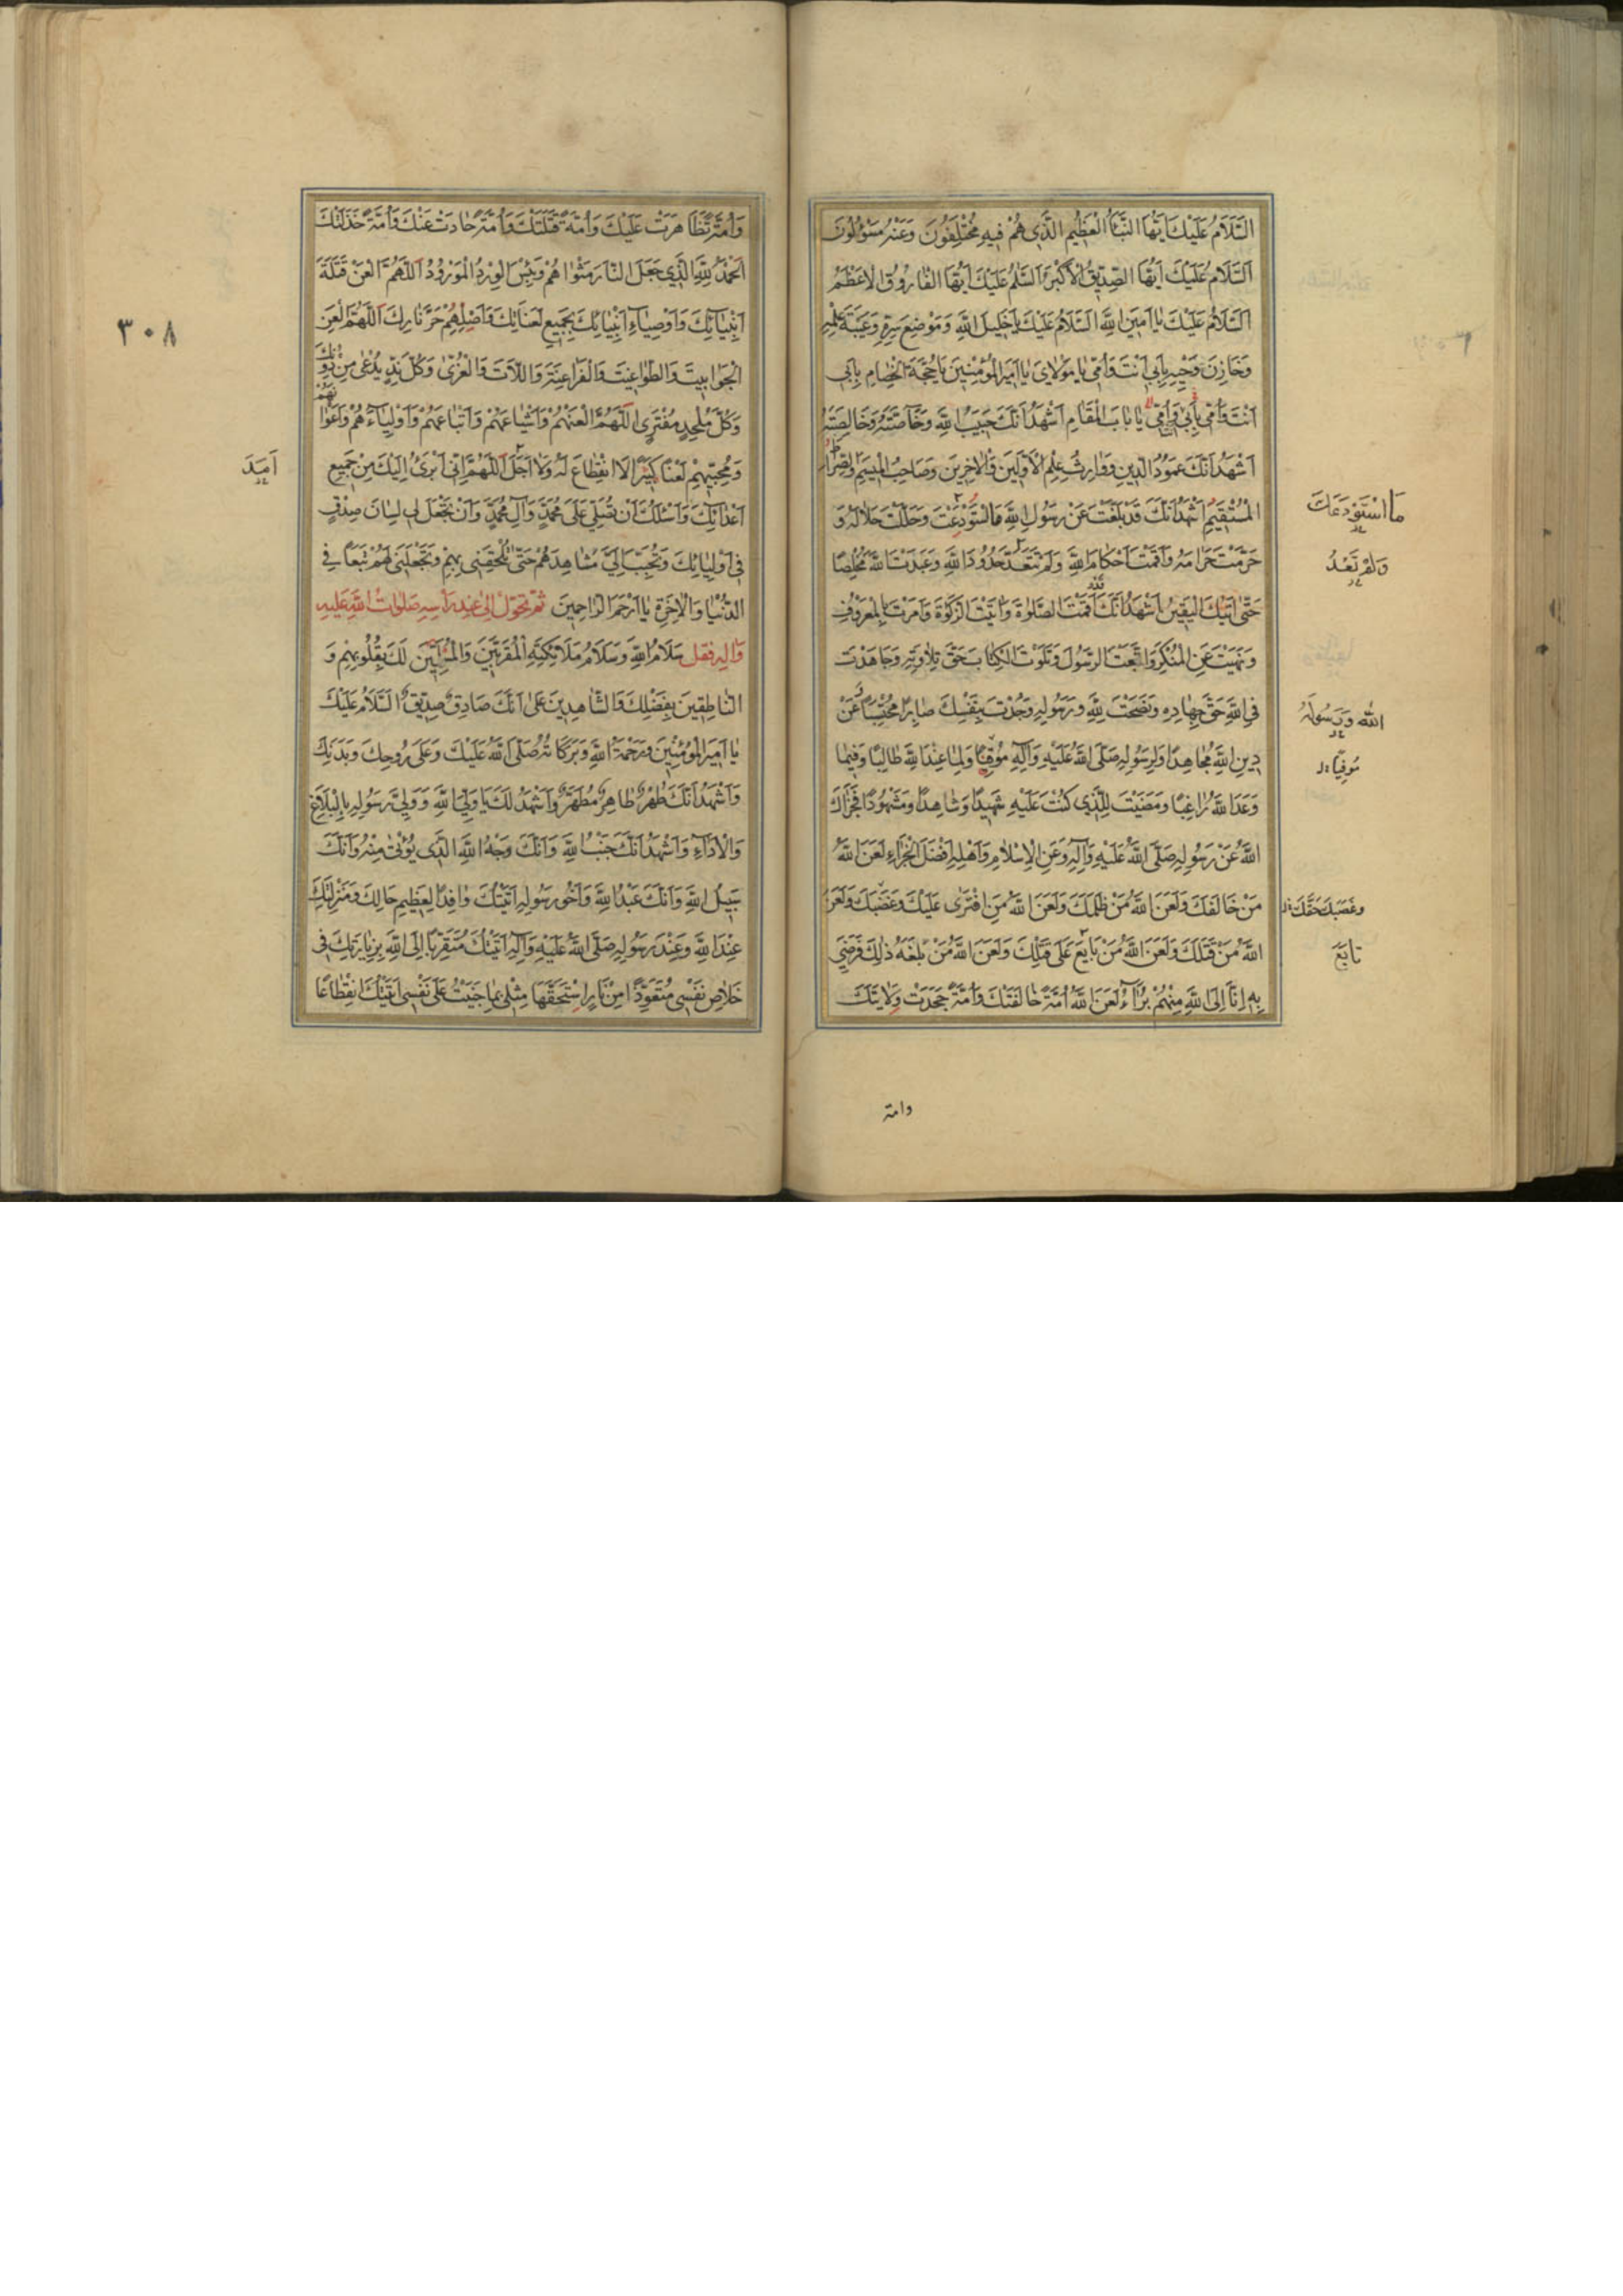 السَّلَامُ عَلَيْكَ اَيُّهَا النَّبَأُ الْعَظِيمُ الَّذِي هُمْ فِيهِ مُخْتَلِفُونَ وَعَنْهُ مَسْؤُلُونَ
اَلسَّلَامُ عَلَيْكَ اَيُّهَا الصِّدِّيقُ الْاَكْبَرُ اَلسَّلَامُ عَلَيْكَ اَيُّهَا الْفَارُوقُ الْاَعْظَمُ
اَلسَّلَامُ عَلَيْكَ يَا اَمِينَ اللهِ السَّلَامُ عَلَيْكَ يَا خَلِيلَ اللهِ وَمَوْضِعَ سِرِّهِ وَعَيْبَةَ عِلْمِهِ
وَخَازِنَ وَحْيِهِ بِاَبِي اَنْتَ وَاُمِّي يَا مَوْلَايَ يَا اَمِيرَ الْمُؤْمِنِينَ يَا حُجَّةَ الْخِصَامِ بِاَبِي
اَنْتَ وَاُمِّي يَا بَابَ الْمَقَامِ اَشْهَدُ اَنَّكَ حَبِيبُ اللهِ وَخَاصَّتُهُ وَخَالِصَتُهُ
اَشْهَدُ اَنَّكَ عَمُودُ الدِّينِ وَوَارِثُ عِلْمِ الْاَوَّلِينَ وَالْاٰخِرِينَ وَصَاحِبُ الْمِيسَمِ وَالصِّرَاطِ
الْمُسْتَقِيمِ اَشْهَدُ اَنَّكَ قَدْ بَلَّغْتَ عَنْ رَسُولِ اللهِ مَا اسْتُودِعْتَ وَحَلَّلْتَ حَلَالَهُ وَ
حَرَّمْتَ حَرَامَهُ وَاَقَمْتَ اَحْكَامَ اللهِ وَلَمْ تَتَعَدَّ حُدُودَ اللهِ وَعَبَدْتَ اللهَ مُخْلِصًا
حَتّٰى اَتٰيكَ الْيَقِينُ اَشْهَدُ اَنَّكَ اَقَمْتَ الصَّلٰوةَ وَاٰتَيْتَ الزَّكٰوةَ وَاَمَرْتَ بِالْمَعْرُوفِ
وَنَهَيْتَ عَنِ الْمُنْكَرِ وَاتَّبَعْتَ الرَّسُولَ وَتَلَوْتَ الْكِتَابَ حَقَّ تِلَاوَتِهِ وَجَاهَدْتَ
فِي اللهِ حَقَّ جِهَادِهِ وَنَصَحْتَ لِلّٰهِ وَرَسُولِهِ وَجُدْتَ بِنَفْسِكَ صَابِرًا مُحْتَسِبًا عَنْ
دِينِ اللهِ مُجَاهِدًا وَلِرَسُولِهِ صَلَّى اللهُ عَلَيْهِ وَاٰلِهِ مُوقِنًا وَلِمَا عِنْدَ اللهِ طَالِبًا وَفِيمَا
وَعَدَ اللهُ رَاغِبًا وَمَضَيْتَ لِلَّذِي كُنْتَ عَلَيْهِ شَهِيدًا وَشَاهِدًا وَمَشْهُودًا فَجَزَاكَ
اللهُ عَنْ رَسُولِهِ صَلَّى اللهُ عَلَيْهِ وَاٰلِهِ وَعَنِ الْاِسْلَامِ وَاَهْلِهِ اَفْضَلَ الْجَزَاءِ لَعَنَ اللهُ
مَنْ خَالَفَكَ وَلَعَنَ اللهُ مَنْ ظَلَمَكَ وَلَعَنَ اللهُ مَنِ افْتَرٰى عَلَيْكَ وَغَصَبَكَ وَلَعَنَ
اللهُ مَنْ قَتَلَكَ وَلَعَنَ اللهُ مَنْ بَايَعَ عَلٰى قَتْلِكَ وَلَعَنَ اللهُ مَنْ بَلَغَهُ ذٰلِكَ فَرَضِيَ
بِهِ اِنَّا اِلَى اللهِ مِنْهُمْ بُرَاٰءُ لَعَنَ اللهُ اُمَّةً خَالَفَتْكَ وَاُمَّةً جَحَدَتْ وِلَايَتَكَ
مَا اسْتَوْدَعَكَ
وَلَمْ تَعْدُ
اللهِ وَرَسُولِهِ
مُوفِيًا
وَغَصَبَكَ حَقَّكَ
تَابَعَ
وامة
وَاُمَّةً تَظَاهَرَتْ عَلَيْكَ وَاُمَّةً قَتَلَتْكَ وَاُمَّةً حَادَتْ عَنْكَ وَاُمَّةً خَذَلَتْكَ
اَلْحَمْدُ لِلّٰهِ الَّذِي جَعَلَ النَّارَ مَثْوٰاهُمْ وَبِئْسَ الْوِرْدُ الْمَوْرُودُ اَللّٰهُمَّ الْعَنْ قَتَلَةَ
اَنْبِيَائِكَ وَاَوْصِيَاءِ اَنْبِيَائِكَ بِجَمِيعِ لَعَنَاتِكَ وَاَصْلِهِمْ حَرَّ نَارِكَ اَللّٰهُمَّ الْعَنِ
الْجَوَابِيتَ وَالطَّوَاغِيتَ وَالْفَرَاعِنَةَ وَاللَّاتَ وَالْعُزّٰى وَكُلَّ نِدٍّ يُدْعٰى مِنْ دُونِكَ
وَكُلَّ مُلْحِدٍ مُفْتَرٍ اَللّٰهُمَّ الْعَنْهُمْ وَاَشْيَاعَهُمْ وَاَتْبَاعَهُمْ وَاَوْلِيَاءَهُمْ وَاَعْوَانَهُمْ
وَمُحِبِّيهِمْ لَعْنًا كَثِيرًا لَا انْقِطَاعَ لَهُ وَلَا اَجَلَ اَللّٰهُمَّ اِنِّي اَبْرَئُ اِلَيْكَ مِنْ جَمِيعِ
اَعْدَائِكَ وَاَسْئَلُكَ اَنْ تُصَلِّيَ عَلٰى مُحَمَّدٍ وَاٰلِ مُحَمَّدٍ وَاَنْ تَجْعَلَ لِي لِسَانَ صِدْقٍ
فِي اَوْلِيَائِكَ وَتُحَبِّبَ اِلَيَّ مَشَاهِدَهُمْ حَتّٰى تُلْحِقَنِي بِهِمْ وَتَجْعَلَنِي لَهُمْ تَبَعًا فِي
الدُّنْيَا وَالْاٰخِرَةِ يَا اَرْحَمَ الرَّاحِمِينَ ثُمَّ تَحَوَّلْ اِلٰى عِنْدِ رَأْسِهِ صَلَوَاتُ اللهِ عَلَيْهِ
وَاٰلِهِ فَقُلْ سَلَامُ اللهِ وَسَلَامُ مَلَائِكَتِهِ الْمُقَرَّبِينَ وَالْمُسَلِّمِينَ لَكَ بِقُلُوبِهِمْ وَ
النَّاطِقِينَ بِفَضْلِكَ وَالشَّاهِدِينَ عَلٰى اَنَّكَ صَادِقٌ صِدِّيقٌ السَّلَامُ عَلَيْكَ
يَا اَمِيرَ الْمُؤْمِنِينَ وَرَحْمَةُ اللهِ وَبَرَكَاتُهُ صَلَّى اللهُ عَلَيْكَ وَعَلٰى رُوحِكَ وَبَدَنِكَ
وَاَشْهَدُ اَنَّكَ طُهْرٌ طَاهِرٌ مُطَهَّرٌ وَاَشْهَدُ لَكَ يَا وَلِيَّ اللهِ وَوَلِيَّ رَسُولِهِ بِالْبَلَاغِ
وَالْاَدَاءِ وَاَشْهَدُ اَنَّكَ جَنْبُ اللهِ وَاَنَّكَ وَجْهُ اللهِ الَّذِي يُؤْتٰى مِنْهُ وَاَنَّكَ
سَبِيلُ اللهِ وَاَنَّكَ عَبْدُ اللهِ وَاَخُو رَسُولِهِ اَتَيْتُكَ وَافِدًا لِعَظِيمِ حَالِكَ وَمَنْزِلَتِكَ
عِنْدَ اللهِ وَعِنْدَ رَسُولِهِ صَلَّى اللهُ عَلَيْهِ وَاٰلِهِ اَتَيْتُكَ مُتَقَرِّبًا اِلَى اللهِ بِزِيَارَتِكَ فِي
خَلَاصِ نَفْسِي مُتَعَوِّذًا مِنْ نَارٍ اِسْتَحَقَّهَا مِثْلِي بِمَا جَنَيْتُ عَلٰى نَفْسِي اَتَيْتُكَ انْقِطَاعًا
اَمَدَ
٣٠٨